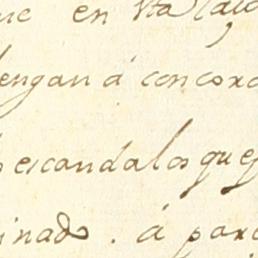 ue en Vta la
engan á concor
escandalos que
inado. á para